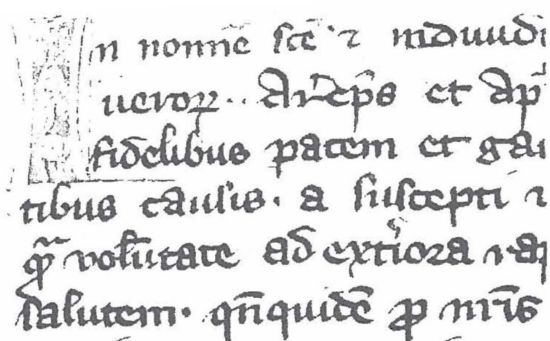 In nomīe sc̄e ⁊ indiuidi
ueroꝝ.. Ar̄ep̄s et ap
fidelibus pacem et gau
tibus causis. a suscepti ⁊
qͣ uolūtate ad extiora ⁊ ap
salutem. qn̄quidē ꝓ nr̄is